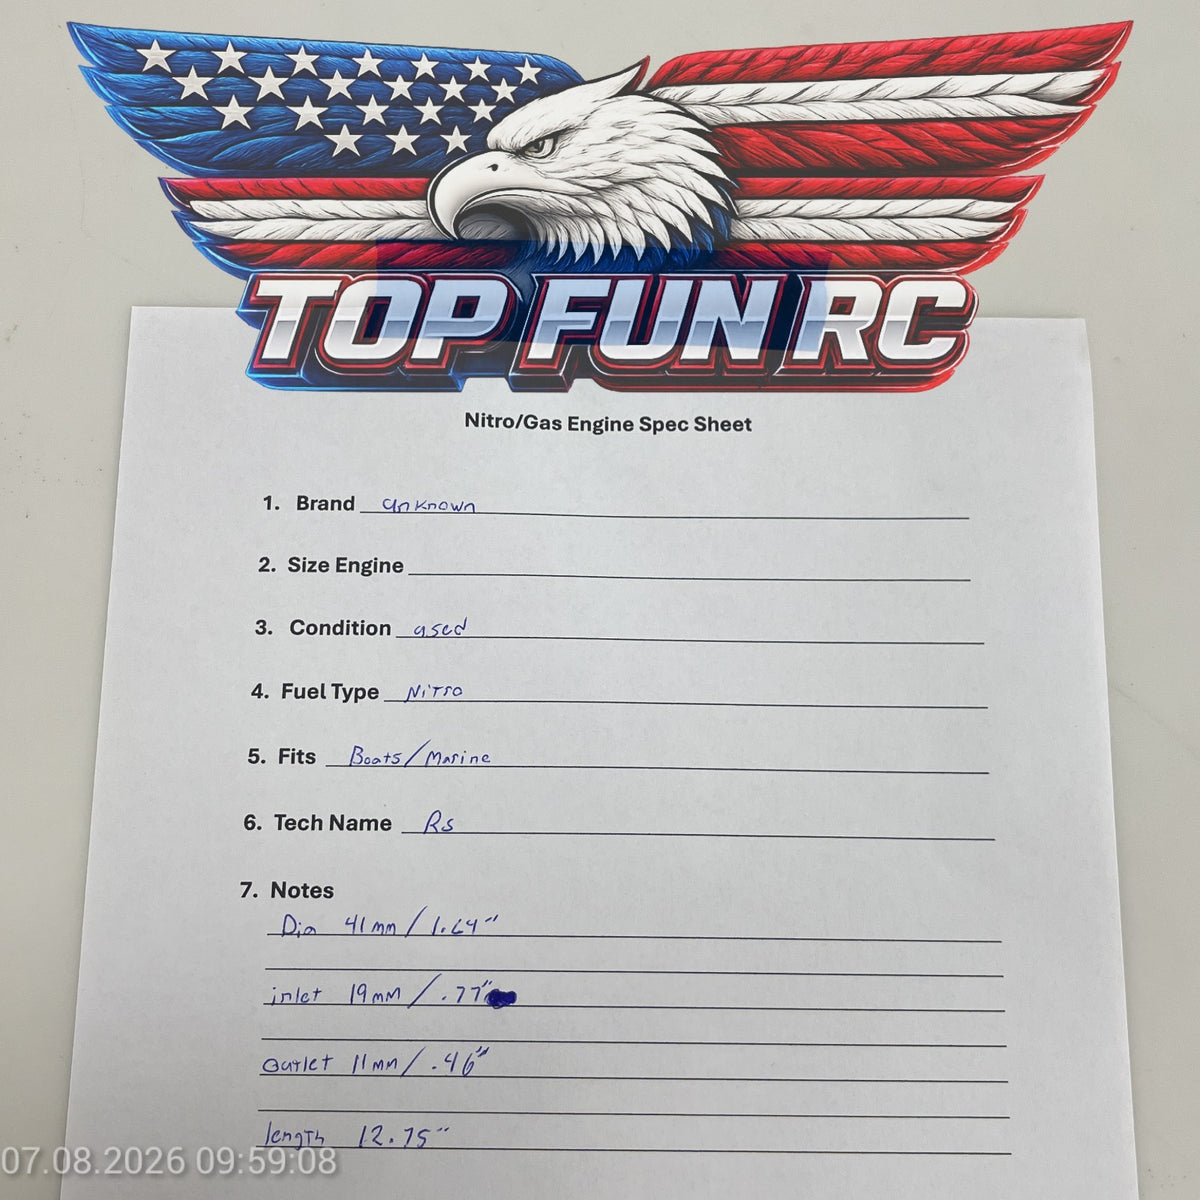 TOP FUN RC
Nitro/Gas Engine Spec Sheet
1. Brand unknown
2. Size Engine
3. Condition used
4. Fuel Type Nitro
5. Fits Boats/Marine
6. Tech Name Rs
7. Notes
Dia 41mm/1.64"
inlet 19mm/.77"
outlet 11mm/.46"
length 12.75"
07.08.2026 09:59:08